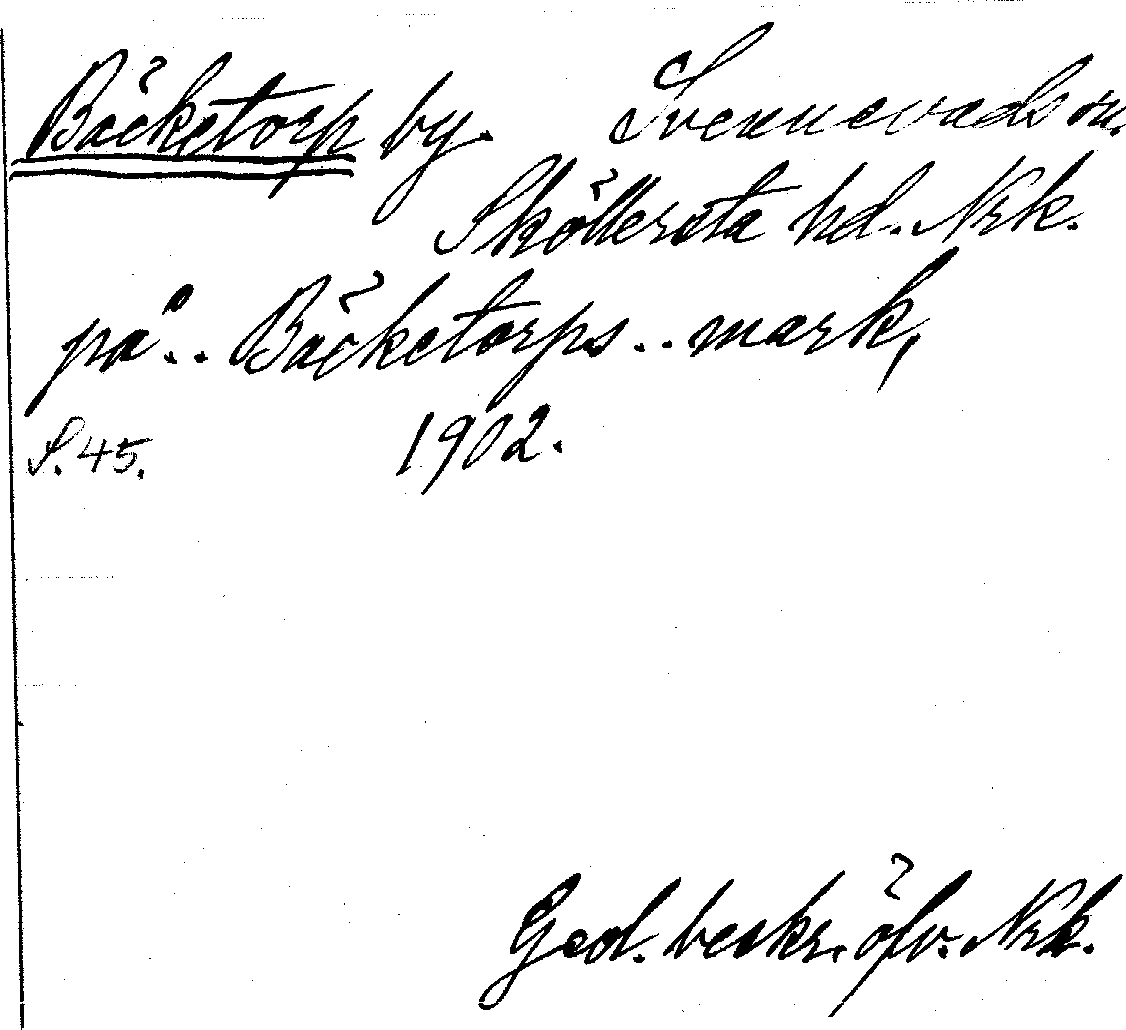 Bäcketorp by. Svennevads sn.
Sköllersta hd. Nrk.
på.. Bäcketorps.. mark,
S. 45. 1902.
Geol. beskr. öfv. Nrk.